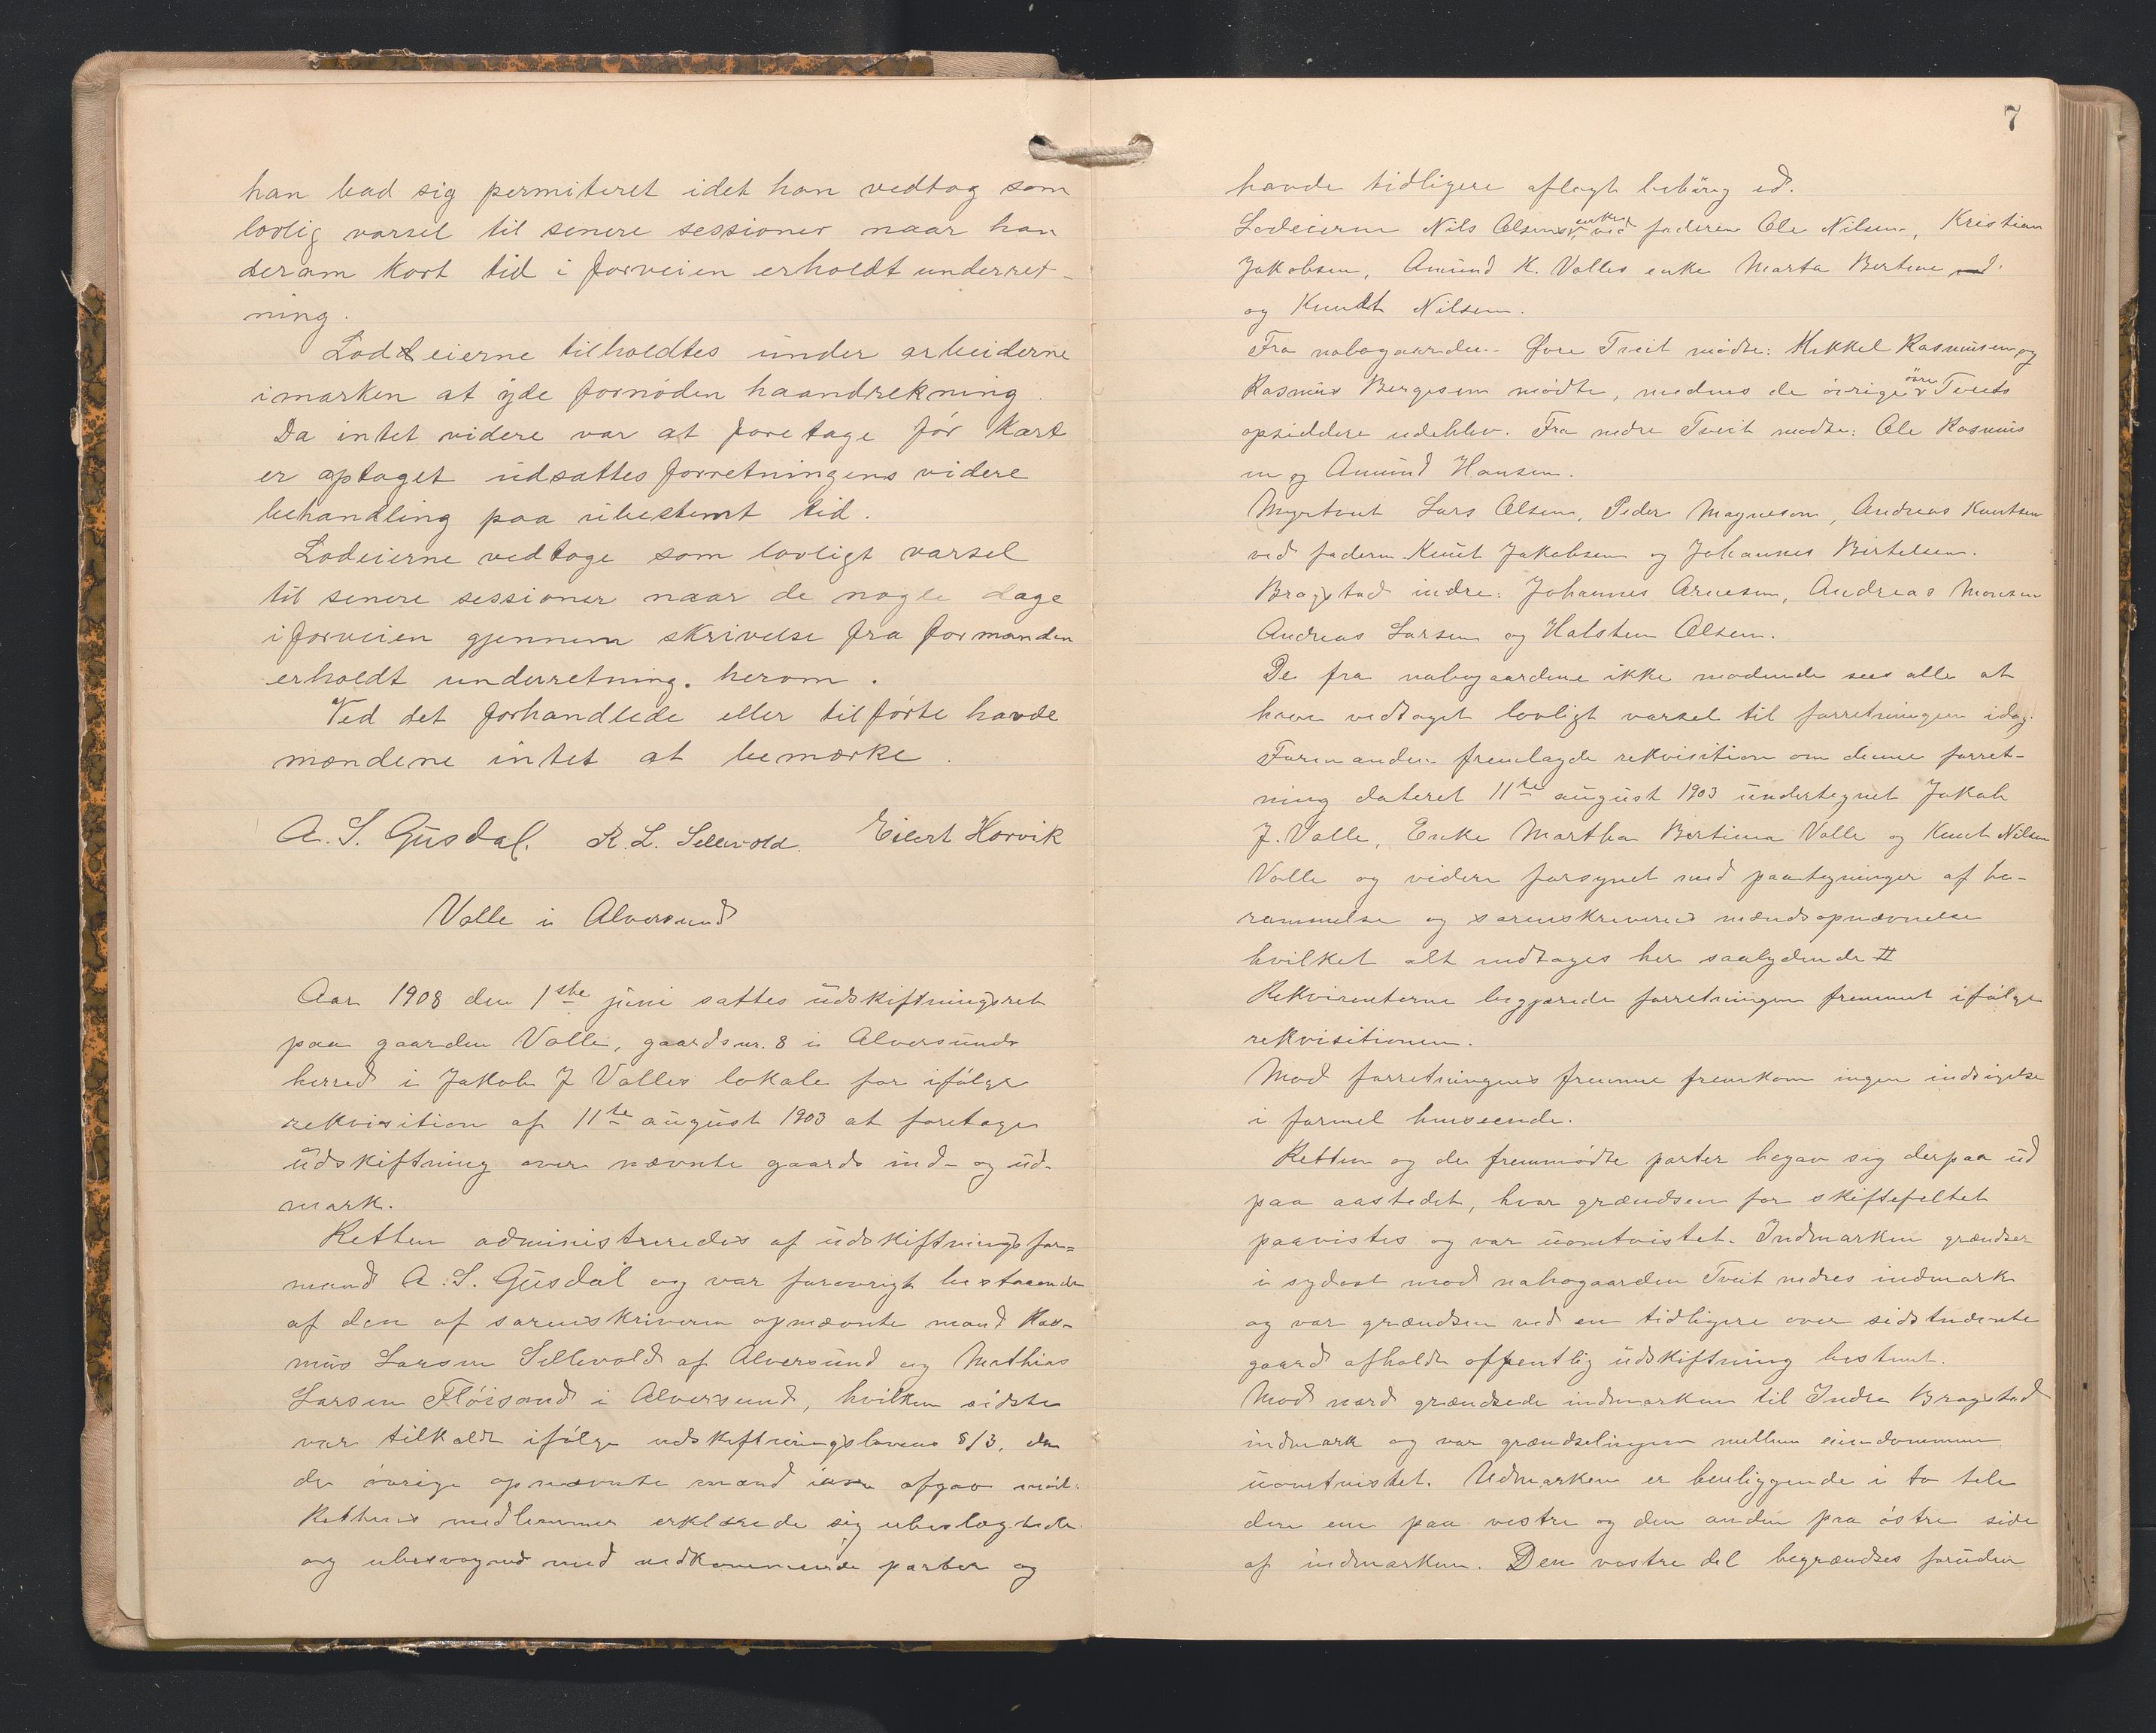 han bad sig permiteret idet han vedtog som
lovlig varsel til senere sessioner naar han
derom kort tid i forveien erholdt underret-
ning.
Lodeierne tilholdtes under arbeiderne
i marken at yde fornøden haandrekning.
Da intet videre var at foretage før Kart
er optaget udsattes forretningens videre
behandling paa ubestemt tid.
Lodeierne vedtoge som lovligt varsel
til senere sessioner naar de nogle dage
i forveien gjennem skrivelse fra formanden
erholdt underretning. herom.
Ved det forhandlede eller tilførte havde
mændene intet at bemærke.
A. S. Gusdal. R. L. Sellevold. Eilert Horvik
Valle i Alversund
Aar 1908 den 1ste juni sattes udskiftningsret
paa gaarden Valle, gaardsnr. 8 i Alversunds
herred i Jakob J Valles lokale for ifølge
rekvisition af 11te august 1903 at foretage
udskiftning over nævnte gaards ind- og ud-
mark.
Retten administreredes af udskiftningsfor=
mand A. S. Gusdal og var forøvrigt bestaaende
af den af sorenskriveren opnævnte mand Ras-
mus Larsen Sellevold af Alversund og Mathias
Larsen Fløisand i Alversund, hvilken sidste
var tilkaldt ifølge udskiftningslovens § 13, da
de øvrige opnævnte mænd afgav
Rettens medlemmer erklærede sig ubeslægtede
og ubesvogred med vedkommende parter og
7
havde tidligere aflagt behørig ed.
Lodeierne Nils Olsens enke ved faderen Ole Nilsen, Kristian
Jakobsen, Amund K. Valles enke Marta Bertine
og Knudt Nilsen.
Fra nabogaarden Øvre Tveit mødte: Mikkel Rasmussen og
Rasmus Bergesen mødte, medens de øvrige øvre Tveits
opsiddere udeblev. Fra nedre Tveit mødte: Ole Rasmus
en og Amund Hansen.
Myrtveit Lars Olsen, Peder Magnesen, Andreas Knutsen
ved faderen Knut Jakobsen og Johannes Bertelsen.
Bragstad indre: Johannes Arnesen, Andreas Monsen
Andreas Larsen og Halsten Olsen.
De fra nabogaardene ikke mødende sees alle at
have vedtaget lovligt varsel til forretningen idag.
Formanden fremlagde rekvisition om denne forret-
ning dateret 11te august 1903 undertegnet Jakob
J. Valle, Enke Martha Bertina Valle og Knut Nilsen
Valle og videre forsynet med paategninger af be-
rammelse og sorenskriverens mændsopnævnelse
hvilket alt indtages her saalydende #
Rekvirenterne begjærede forretningen fremmet ifølge
rekvisitionen.
Mod forretningens fremme fremkom ingen indsigelse
i formel henseende.
Retten og de fremmødte parter begav sig derpaa ud
paa aastedet, hvor grændsen for skiftefeltet
paavistes og var uomtvistet. Indmarken grændser
i sydost mod nabogaarden Tveit nedres indmark
og var grændsen ved en tidligere over sidstnævnte
gaard afholdt offentlig udskiftning bestemt.
Mod nord grændsede indmarken til Indre Bragstad
indmark og var grændselinjen mellem eiendommene
uomtvistet. Udmarken er beliggende i to dele
den ene paa vestre og den anden paa østre side
af indmarken. Den vestre del begrændses foruden